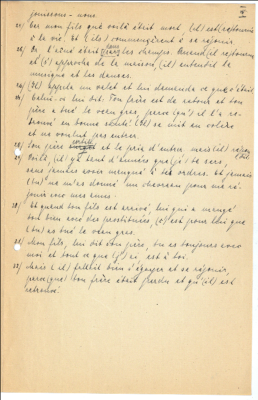 jouissons - nous.
24/ Car mon fils que voilà était mort, (il) est retourné
à la vie. Et (ils) commençèrent à se réjouir.
25/ Or l'aîné était dans les champs. Quand (il) retournant
et (s') approcha de la maison, (il) entendit la
musique et les danses.
26/ (Il) appela un valet et lui demanda ce que c'était.
27/ Celui-ci lui dit: Ton frère est de retour et ton
père a tué le veau gras, parce (qu') il l'a re-
trouvé en bonne santé.
28/ (Il) se mit en colère
et ne voulut pas entrer.
Son père sortit et le pria d'entrer mais (il)
29/ Voilà, (il) y a tant d'années que (j') te sers,
sans jamais avoir manqué à tes ordres. Et jamais
(tu) ne m'as donné un chevreau pour me ré-
jouir avec mes amis.
30/ Et quand ton fils est arrivé, lui qui a mangé
ton bien avec des prostituées, (c') est pour lui que
(tu) as tué le veau gras.
31/ Mon fils, lui dit son père, tu es toujours avec
moi et tout ce que (j') ai est à toi.
32/ Mais (il) fallait bien s'égayer et se réjouir,
parce (que) ton frère était perdu et qu' (il) est
retrouvé.